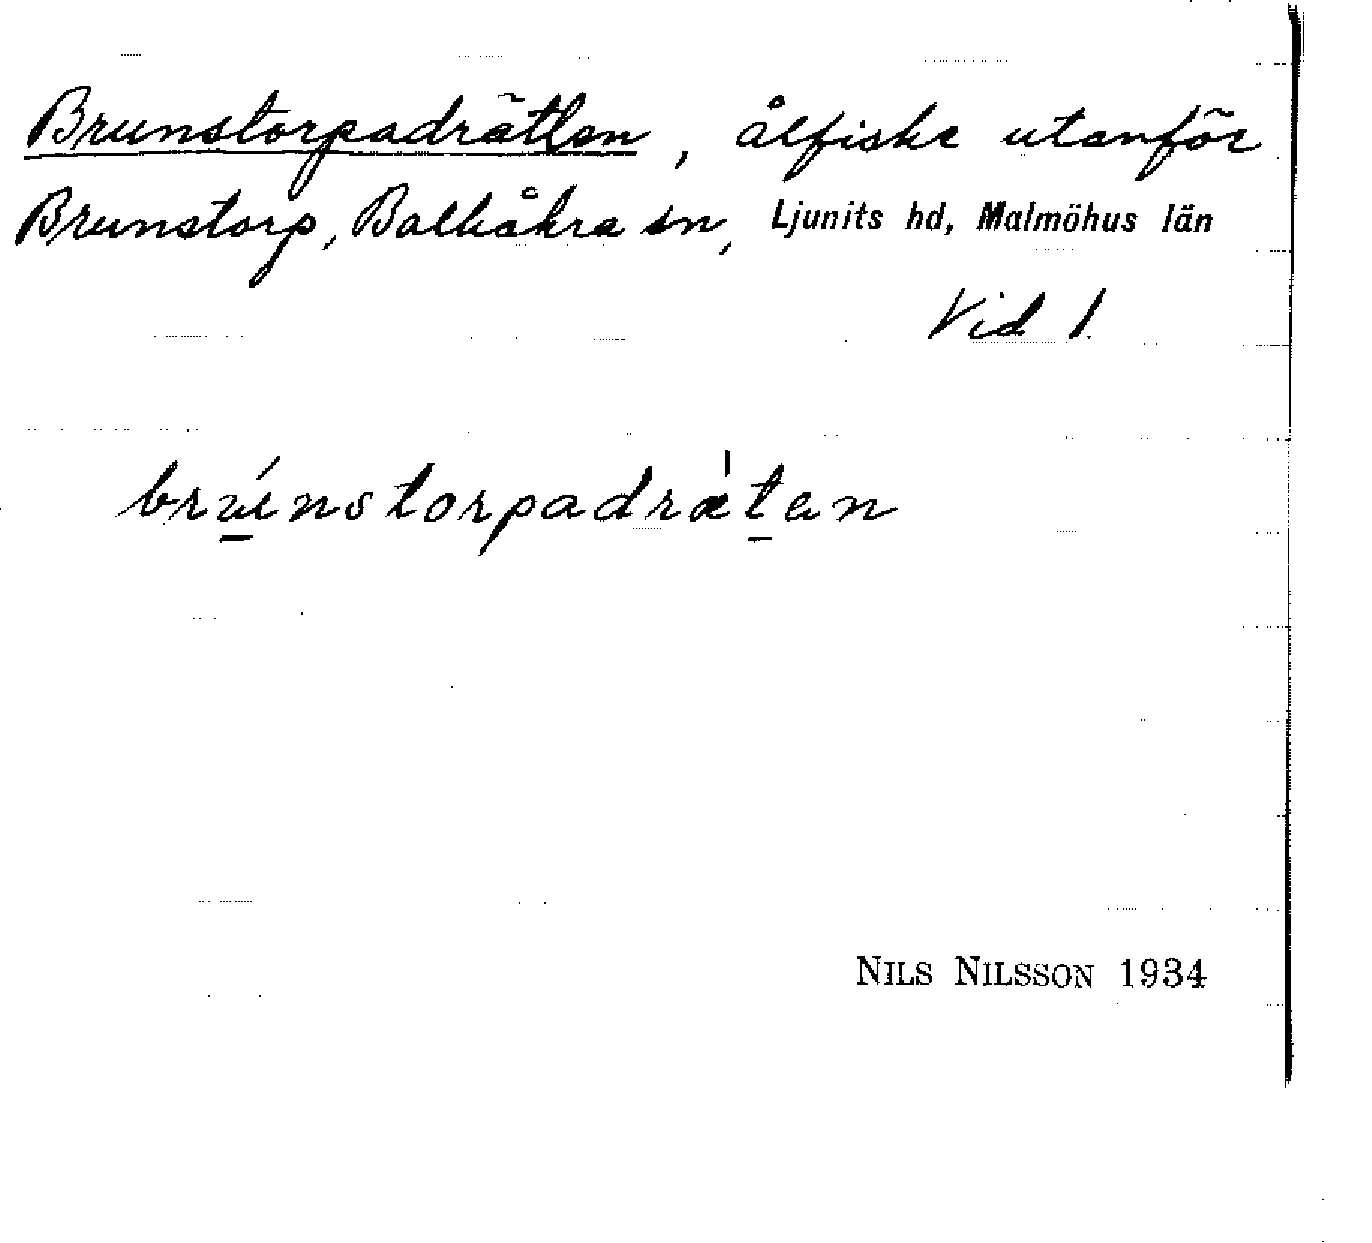 Brunstorpadrätten, ålfiske utanför
Brunstorp, Balkåkra sn, Ljunits hd, Malmöhus län
Vid 1
brúnstorpadræ̍ten
NILS NILSSON 1934